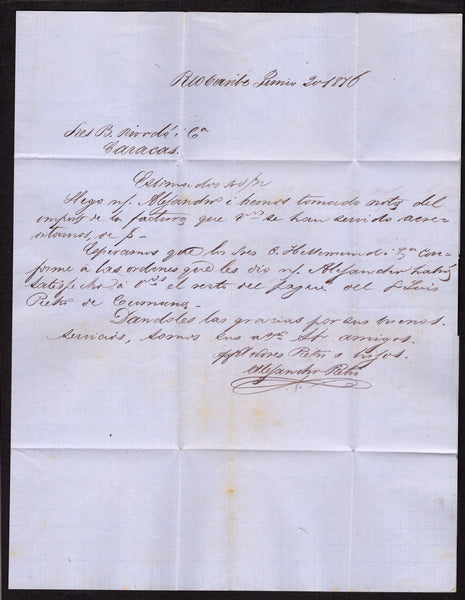 Rio Caribe Junio 20 1876
Sres B. Rivodó i Ca
Caracas.
Estimados
Llegó n/. Alejandro i hemos tomado nota del
importe de la factura que Vms se han servido acre-
ditarnos, de
Esperamos que los Sres C. Hellmund i Ca con-
forme á las ordenes que les dió n/. Alejandro habrá
satisfecho á el resto del pagaré del Sr Luis
Pietri de Cumaná.
Dandoles las gracias por sus buenos
servicios, somos sus amigos.
Andres Pietri e hijos.
Alejandro Pietri